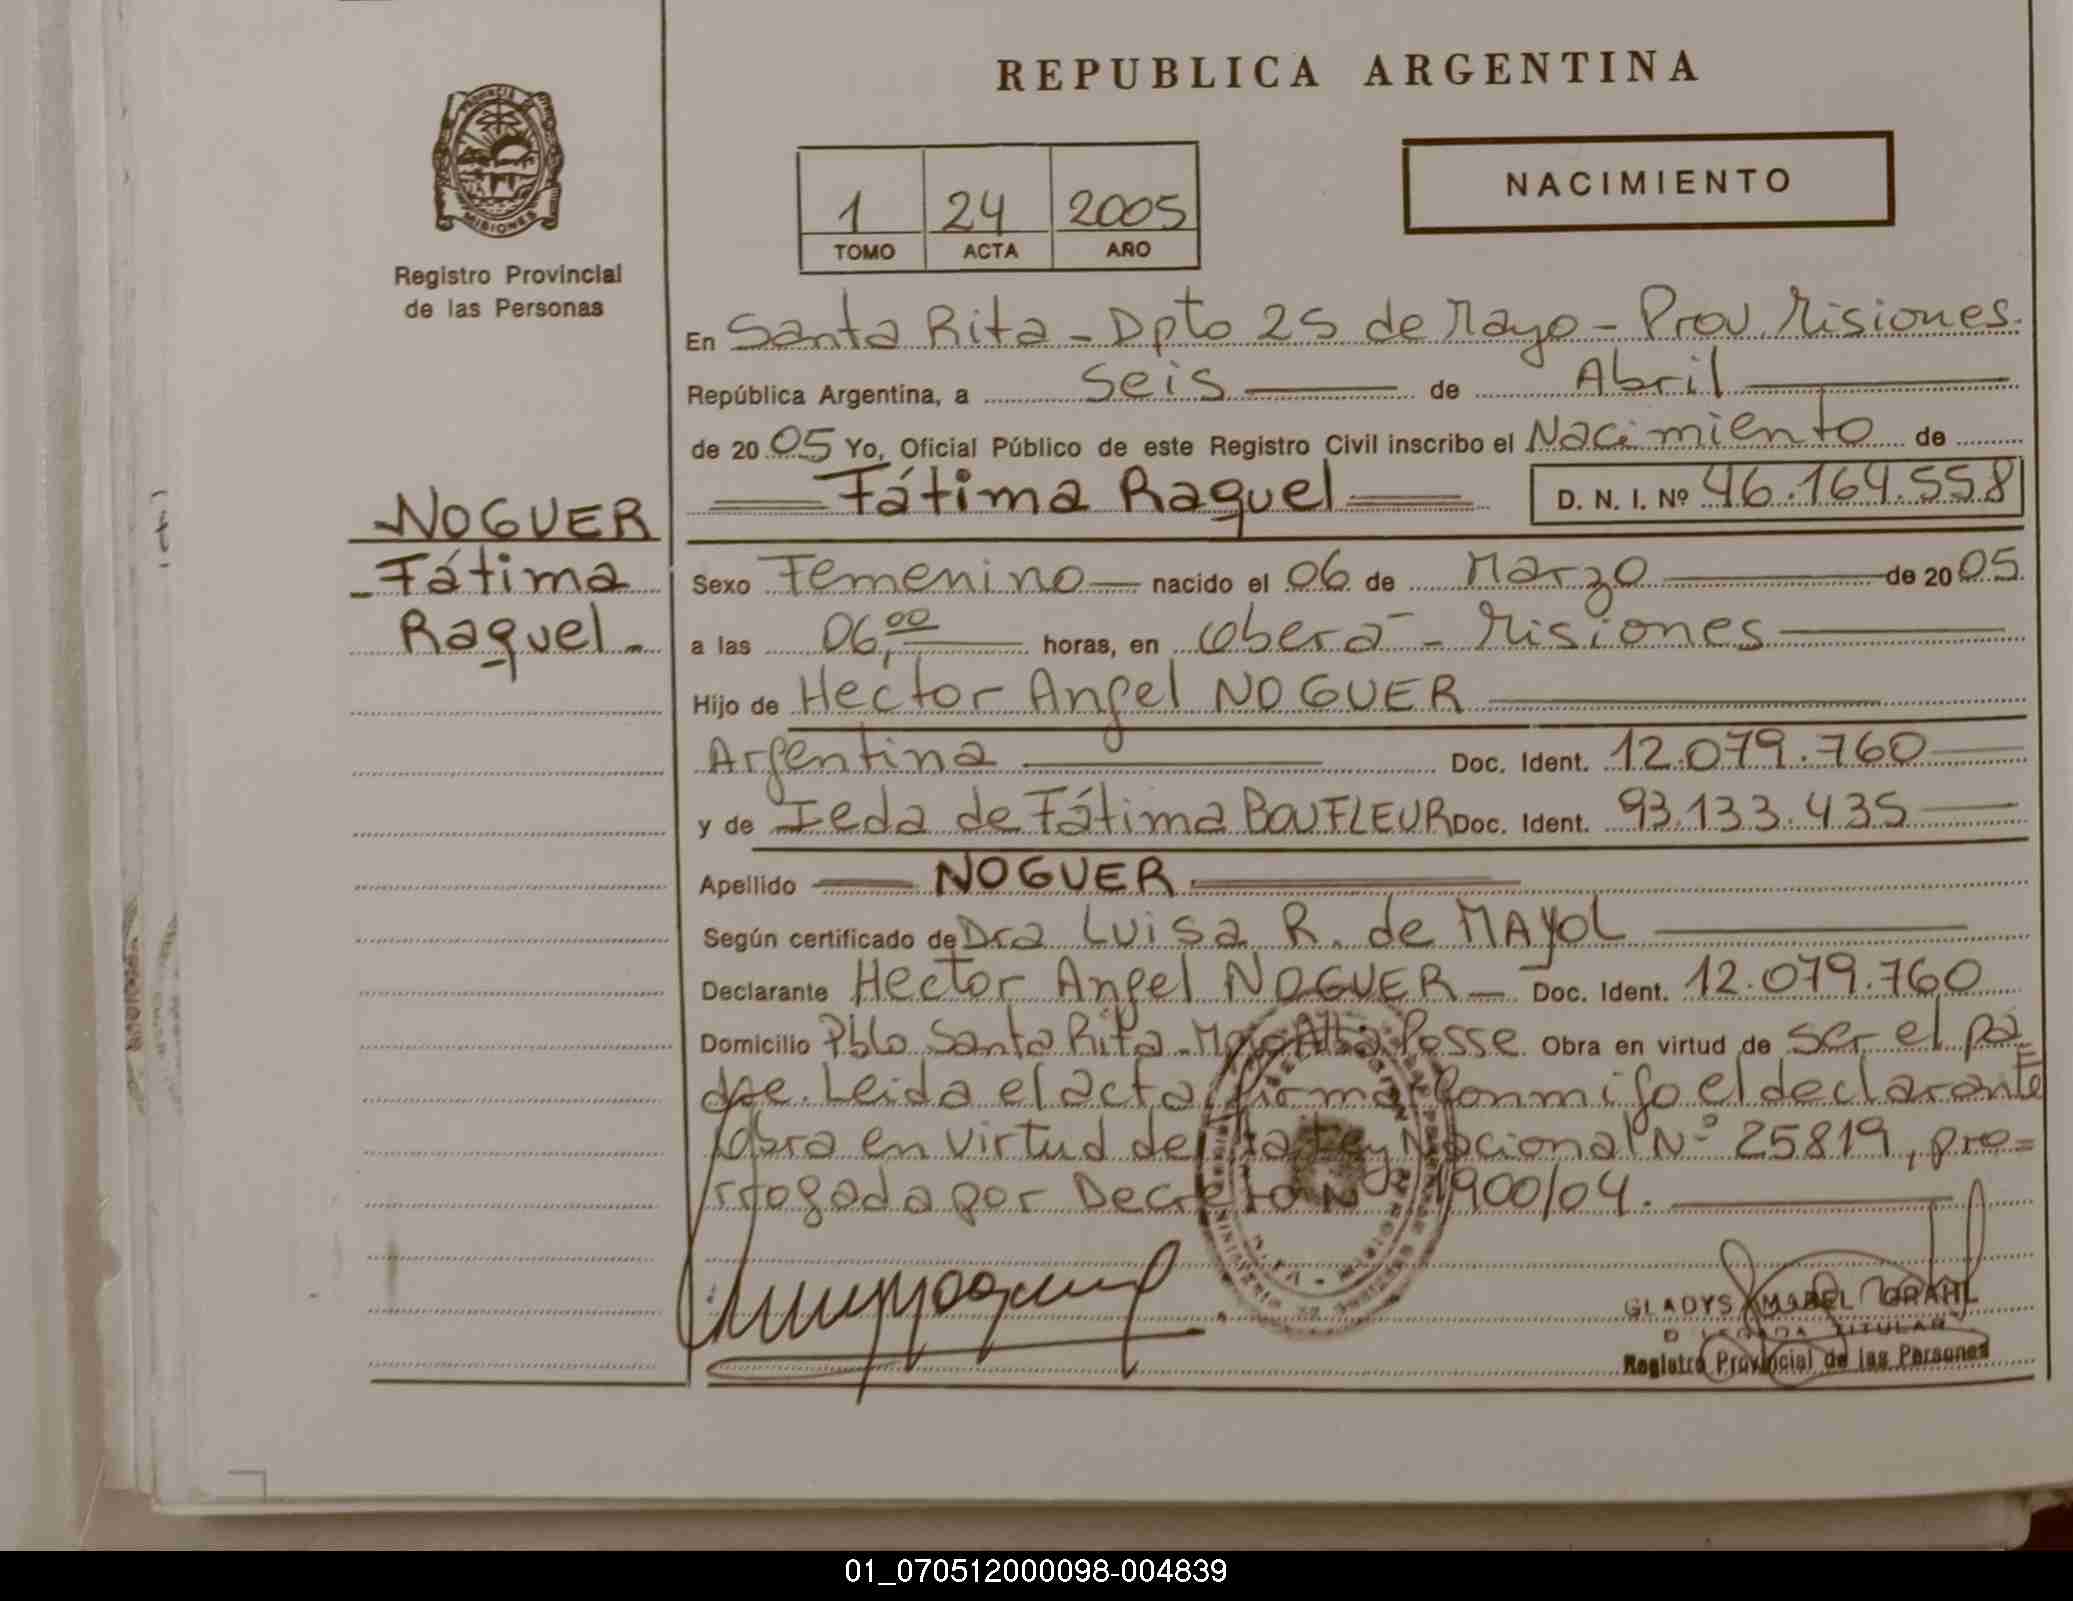 REPUBLICA ARGENTINA
PROVINCIA DE
MISIONES
Registro Provincial
de las Personas
1 24 2005
TOMO ACTA AÑO
NACIMIENTO
En Santa Rita - Dpto 25 de Mayo - Prov. Misiones.
República Argentina, a Seis de Abril
de 2005 Yo, Oficial Público de este Registro Civil inscribo el Nacimiento de
Fátima Raquel D. N. I. Nº 46.164.558
NOGUER
Fátima
Raquel.-
Sexo Femenino nacido el 06 de Marzo de 2005
a las 06,00 horas, en Oberá - Misiones
Hijo de Hector Angel NOGUER
Argentina Doc. Ident. 12.079.760
y de Ieda de Fátima BOUFLEUR Doc. Ident. 93.133.435
Apellido NOGUER
Según certificado de Dra Luisa R. de MAYOL
Declarante Hector Angel NOGUER - Doc. Ident. 12.079.760
Domicilio Pblo Santa Rita - Mpio Alba Posse Obra en virtud de ser el pa
dre. Leida el acta, firma conmigo el declarante
Obra en virtud de la Ley Nacional Nº 25819, pro=
rrogada por Decreto Nº 1900/04.
GLADYS MABEL GRAHL
DELEGADA TITULAR
Registro Provincial de las Personas
01_070512000098-004839